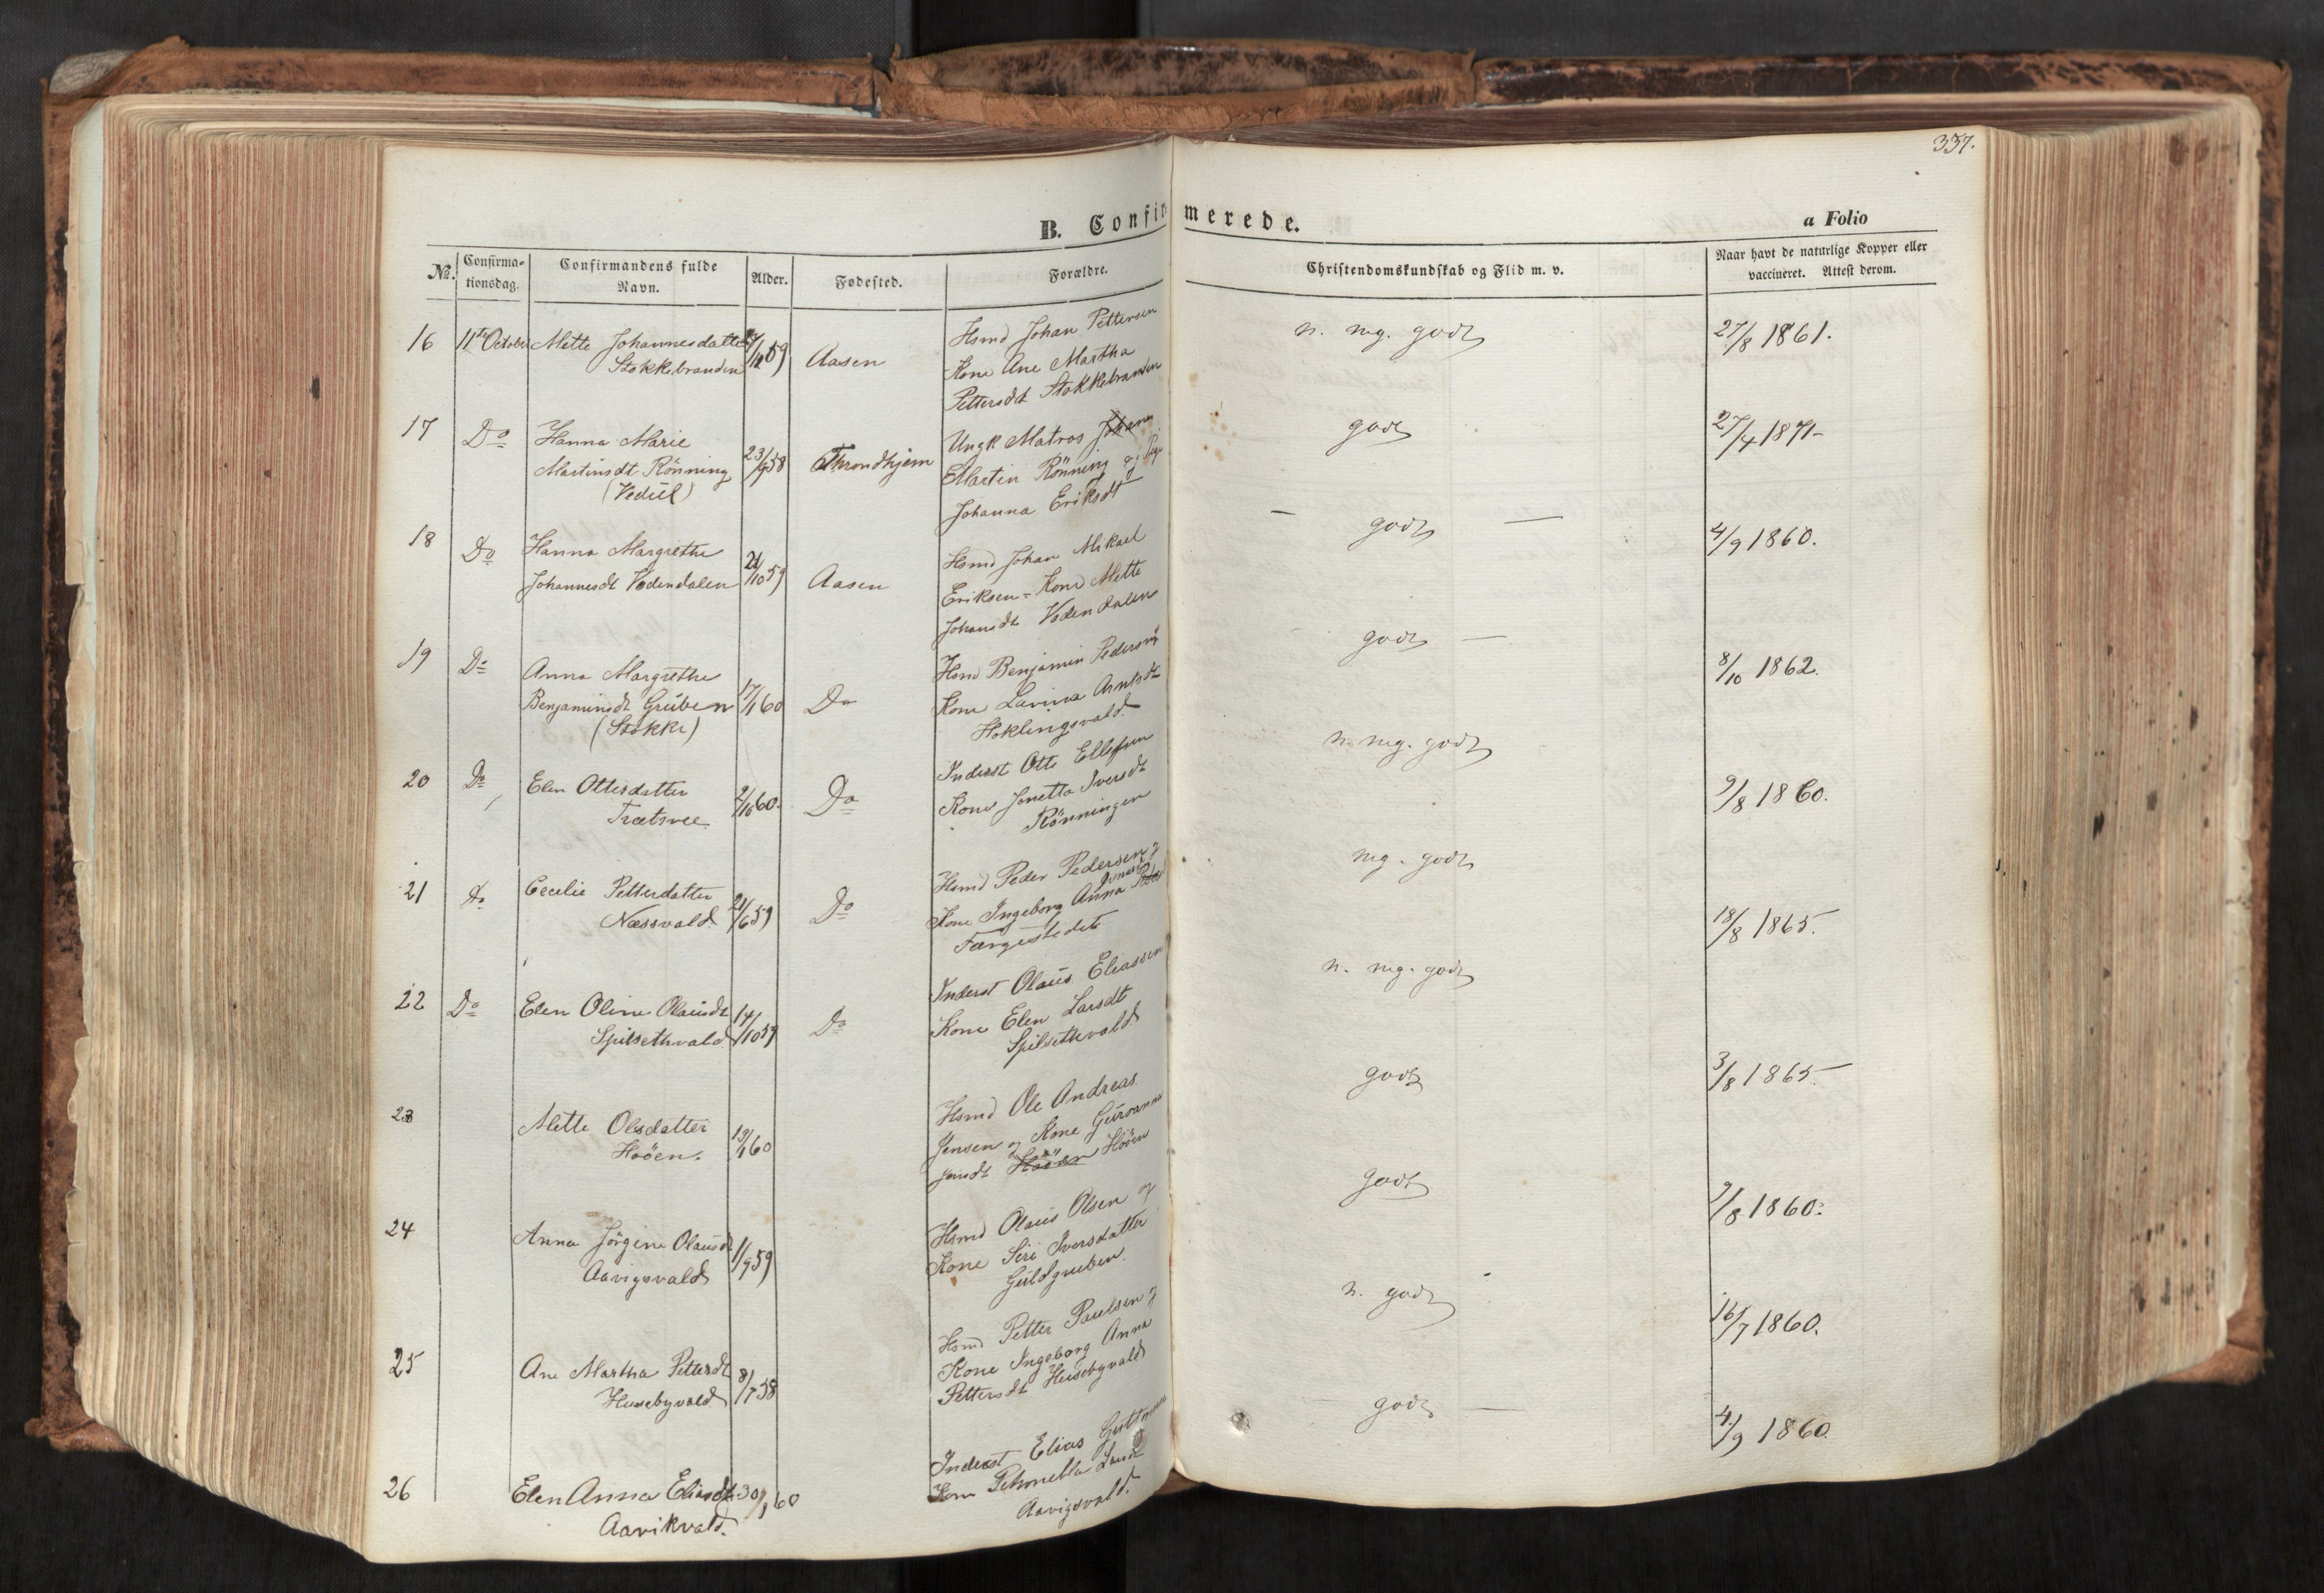 337.
B. Confirmerede.
a Folio
No.
Confirma-
tionsdag.
Confirmandens fulde
Navn.
Alder.
Fødested.
Forældre.
Christendomskundskab og Flid m. v.
Naar havt de naturlige Kopper eller
vaccineret. Attest derom.
16 11te October Mette Johannesdatter 59 Aasen Hsmd Johan Pettersen n. mg. godt 27/8 1861.
Stokkebranden Kone Ane Martha
Pettersdt Stokkebranden
17 Do Hanna Marie 23/9 58 Throndhjem Ungk Matros godt 27/4 1871
Martinsdt Rönning Martin Rönning og Pige
(Vedül) Johanna Eriksdt
18 Do Hanna Margrethe 21/10 59 Aasen Hsmd Johan Mikael godt 4/9 1860.
Johannesdt Vodendalen Eriksen = Kone Mette
Johansdt Vodendalen
19 Do Anna Margrethe 17/1 60 Do Hsmd Benjamin Pedersen godt 8/10 1862.
Benjaminsdt Grüben Kone Lavina Arntsdt
(Stokke) Hoklingsvald.
20 Do Elen Ottersdatter 60. Do Inderst Otte Ellefsen n. mg. godt 9/8 1860.
Trætsvee. Kone Jonetta Iversdt
Rönningen
21 Do Cecelie Petterdatter 21/6 59 Do Hsmd Peder Pedersen og mg. godt 18/8 1865.
Næssvald. Kone Ingeborg Anna
Færgestedet
22 Do Elen Oline Olausdt 14/10 59 Do Inderst Olaus Eliassen n. mg. godt 3/8 1865.
Spilsethvald Kone Elen Larsdt
Spilsethvald
23 Mette Olsdatter 19/1 60 Hsmd Ole Andreas godt 9/8 1860.
Hööen. Jensen og Kone Guruanna
Jensdt Hööen Hööen
24 Anna Jörgine Olausdt 1/9 59 Hsmd Olaus Olsen og godt 16/7 1860.
Aavigsvald Kone Siri Iversdatter
Guldgruben.
25 Ane Martha Petterdt 8/7 58 Hsmd Petter Paulsen og n. godt 4/9 1860.
Husebyvald Kone Ingeborg Anna
Pettersdt Husebyvald
26 Elen Anna Eliasdt 30/1 60 Inderst Elias godt
Aavikvald. Kone
Aavigsvald.